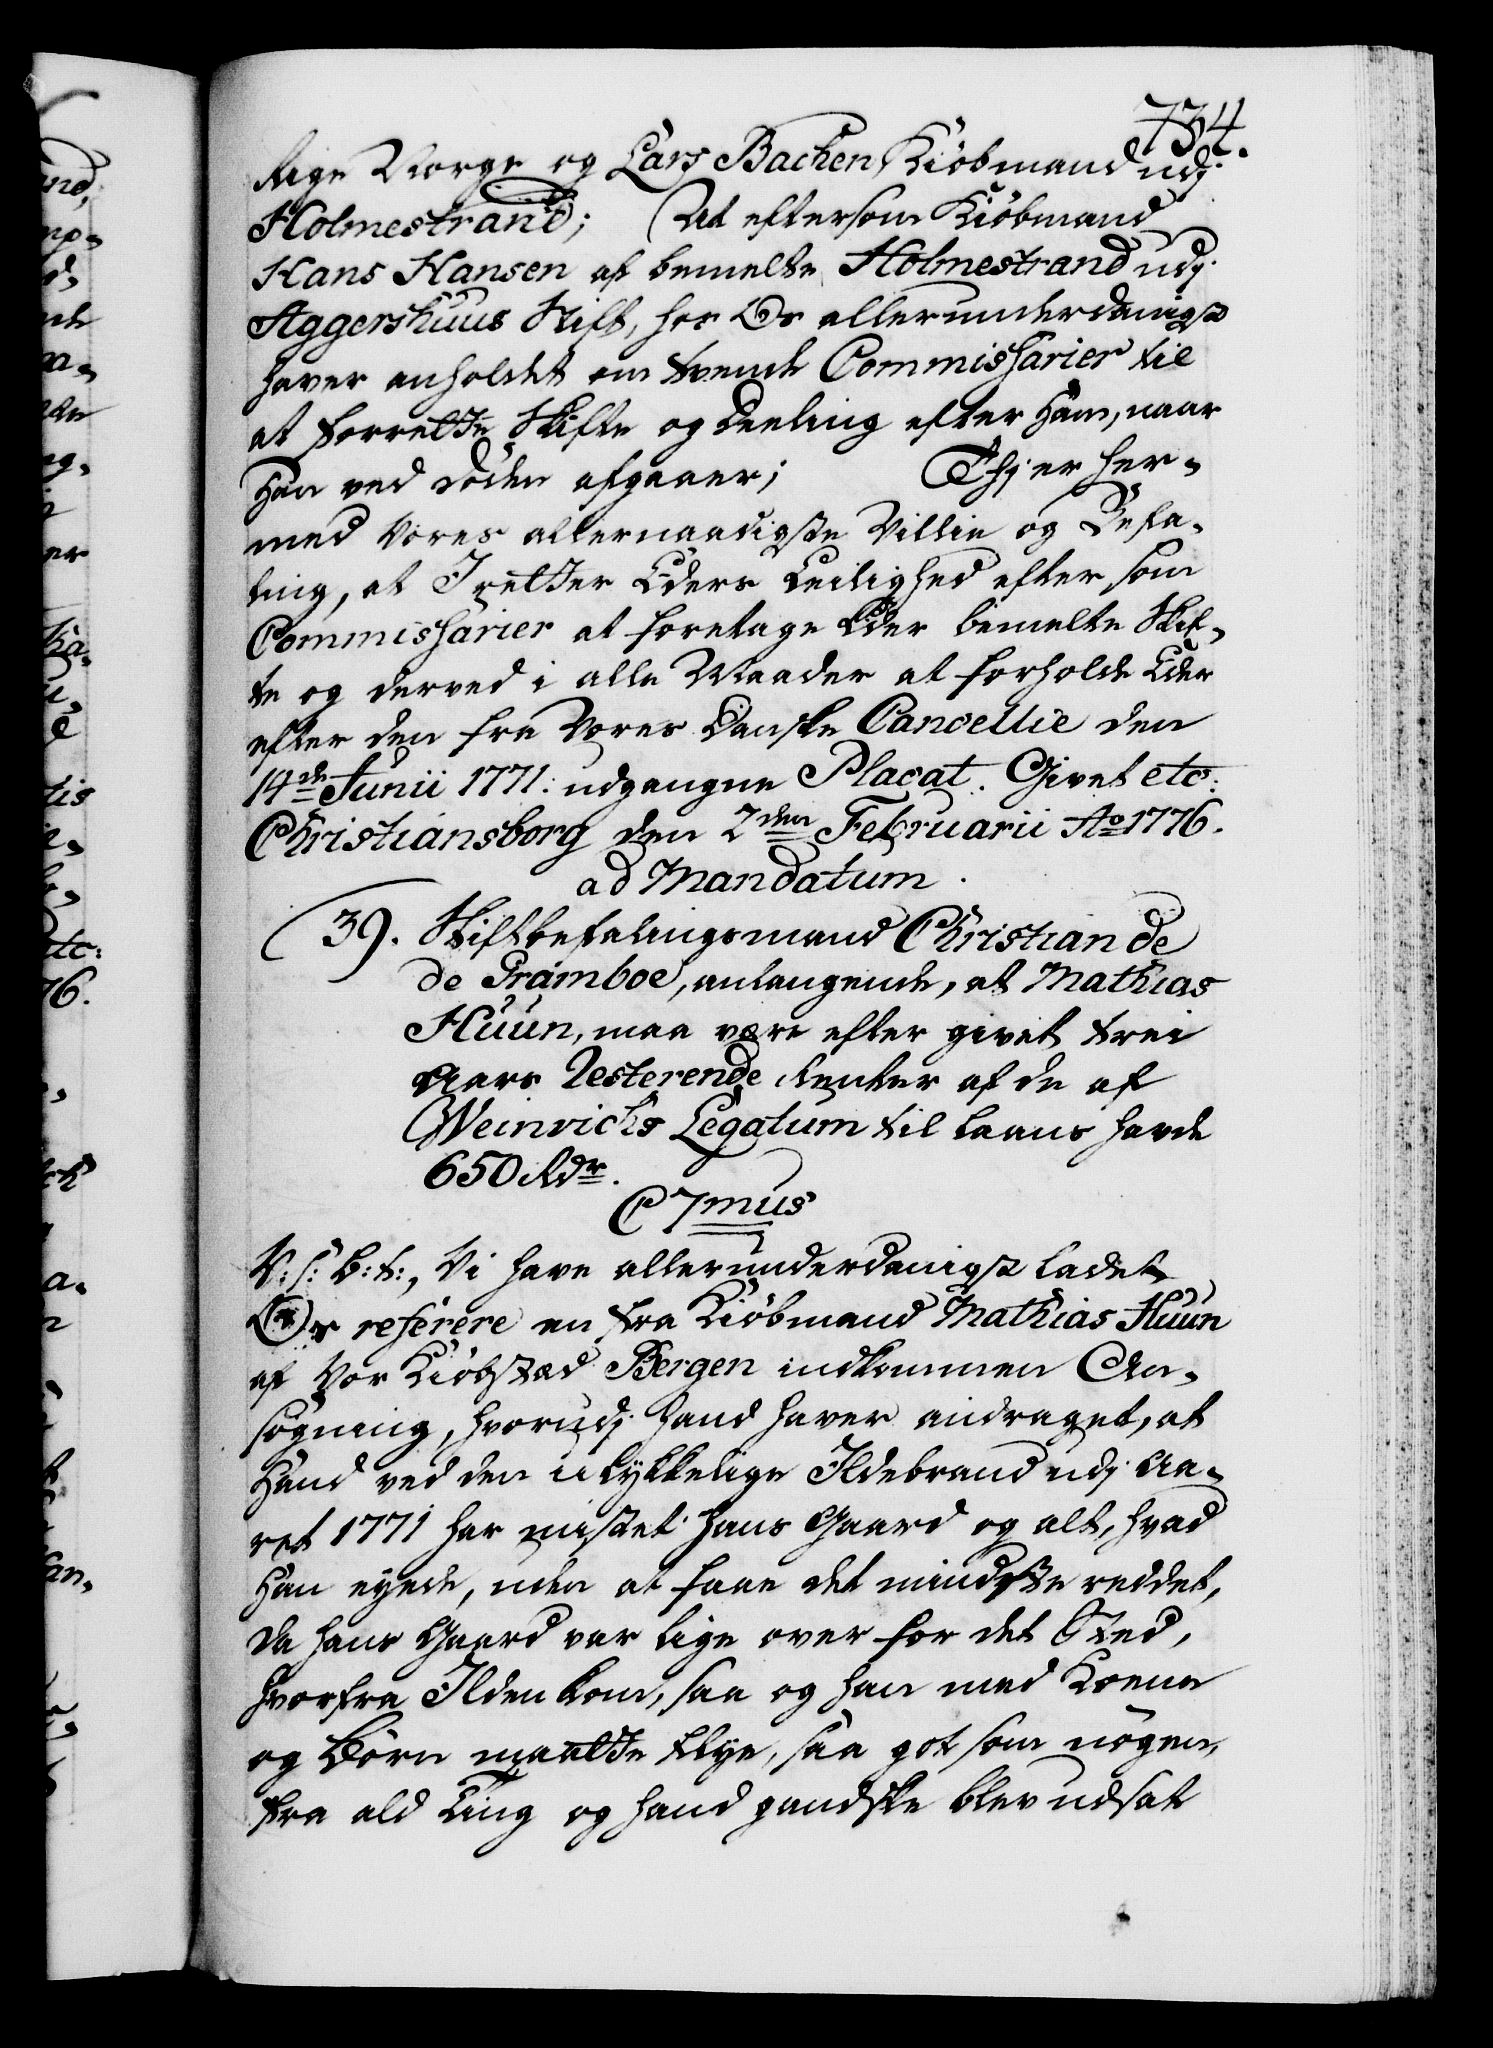 734.
Rige Norge og Lars Bachen Kiöbmand udj
Holmestrand; At eftersom Kiöbmand
Hans Hansen af bemelte Holmestrand udj
Aggershuus Stift, hos Os allerunderdanigst
haver anholdet om tvende Commissarier til
at forrette Skifte og Deeling efter Ham, naar
Han ved Döden afgaaer; Thj er her-
med Vores allernaadigste Villie og Befa-
ling, at I retter Eders Leilighed efter som
Commissarier at foretage Eder bemelte Skif-
te og derved i alle Maader at forholde Eder
efter den fra Vores Danske Cancellie den
14de Junii 1771: udgangne Placat. Givet etc:
Christiansborg den 2den Februarii Ao 1776.
ad Mandatum.
39. Stiftbefalingsmand Christian de
de Pramboe, anlangende, at Mathias
Huun, maa være efter givet trei
Aars Resterende Renter af de af
Weinvichs Legatum til Laans havde
650 Rdr.
C 7mus
V: s: G: t:, Vi have allerunderdanigst ladet
Os referere en fra Kiöbmand Mathias Huun
af Vor Kiöbstæd Bergen indkommen An-
sögning, hvorudj hand haver andraget, at
Hand ved den ulykkelige Ildebrand udj Aa-
ret 1771 har mistet hans Gaard og alt, hvad
Han eyede, uden at faae det mindste reddet,
da hans Gaard var lige over for det Sted,
hvorfra Ilden kom, saa og han med Koene
og Börn maatte flye, saa got som nögen,
fra ald Ting og hand gandske blev udsat